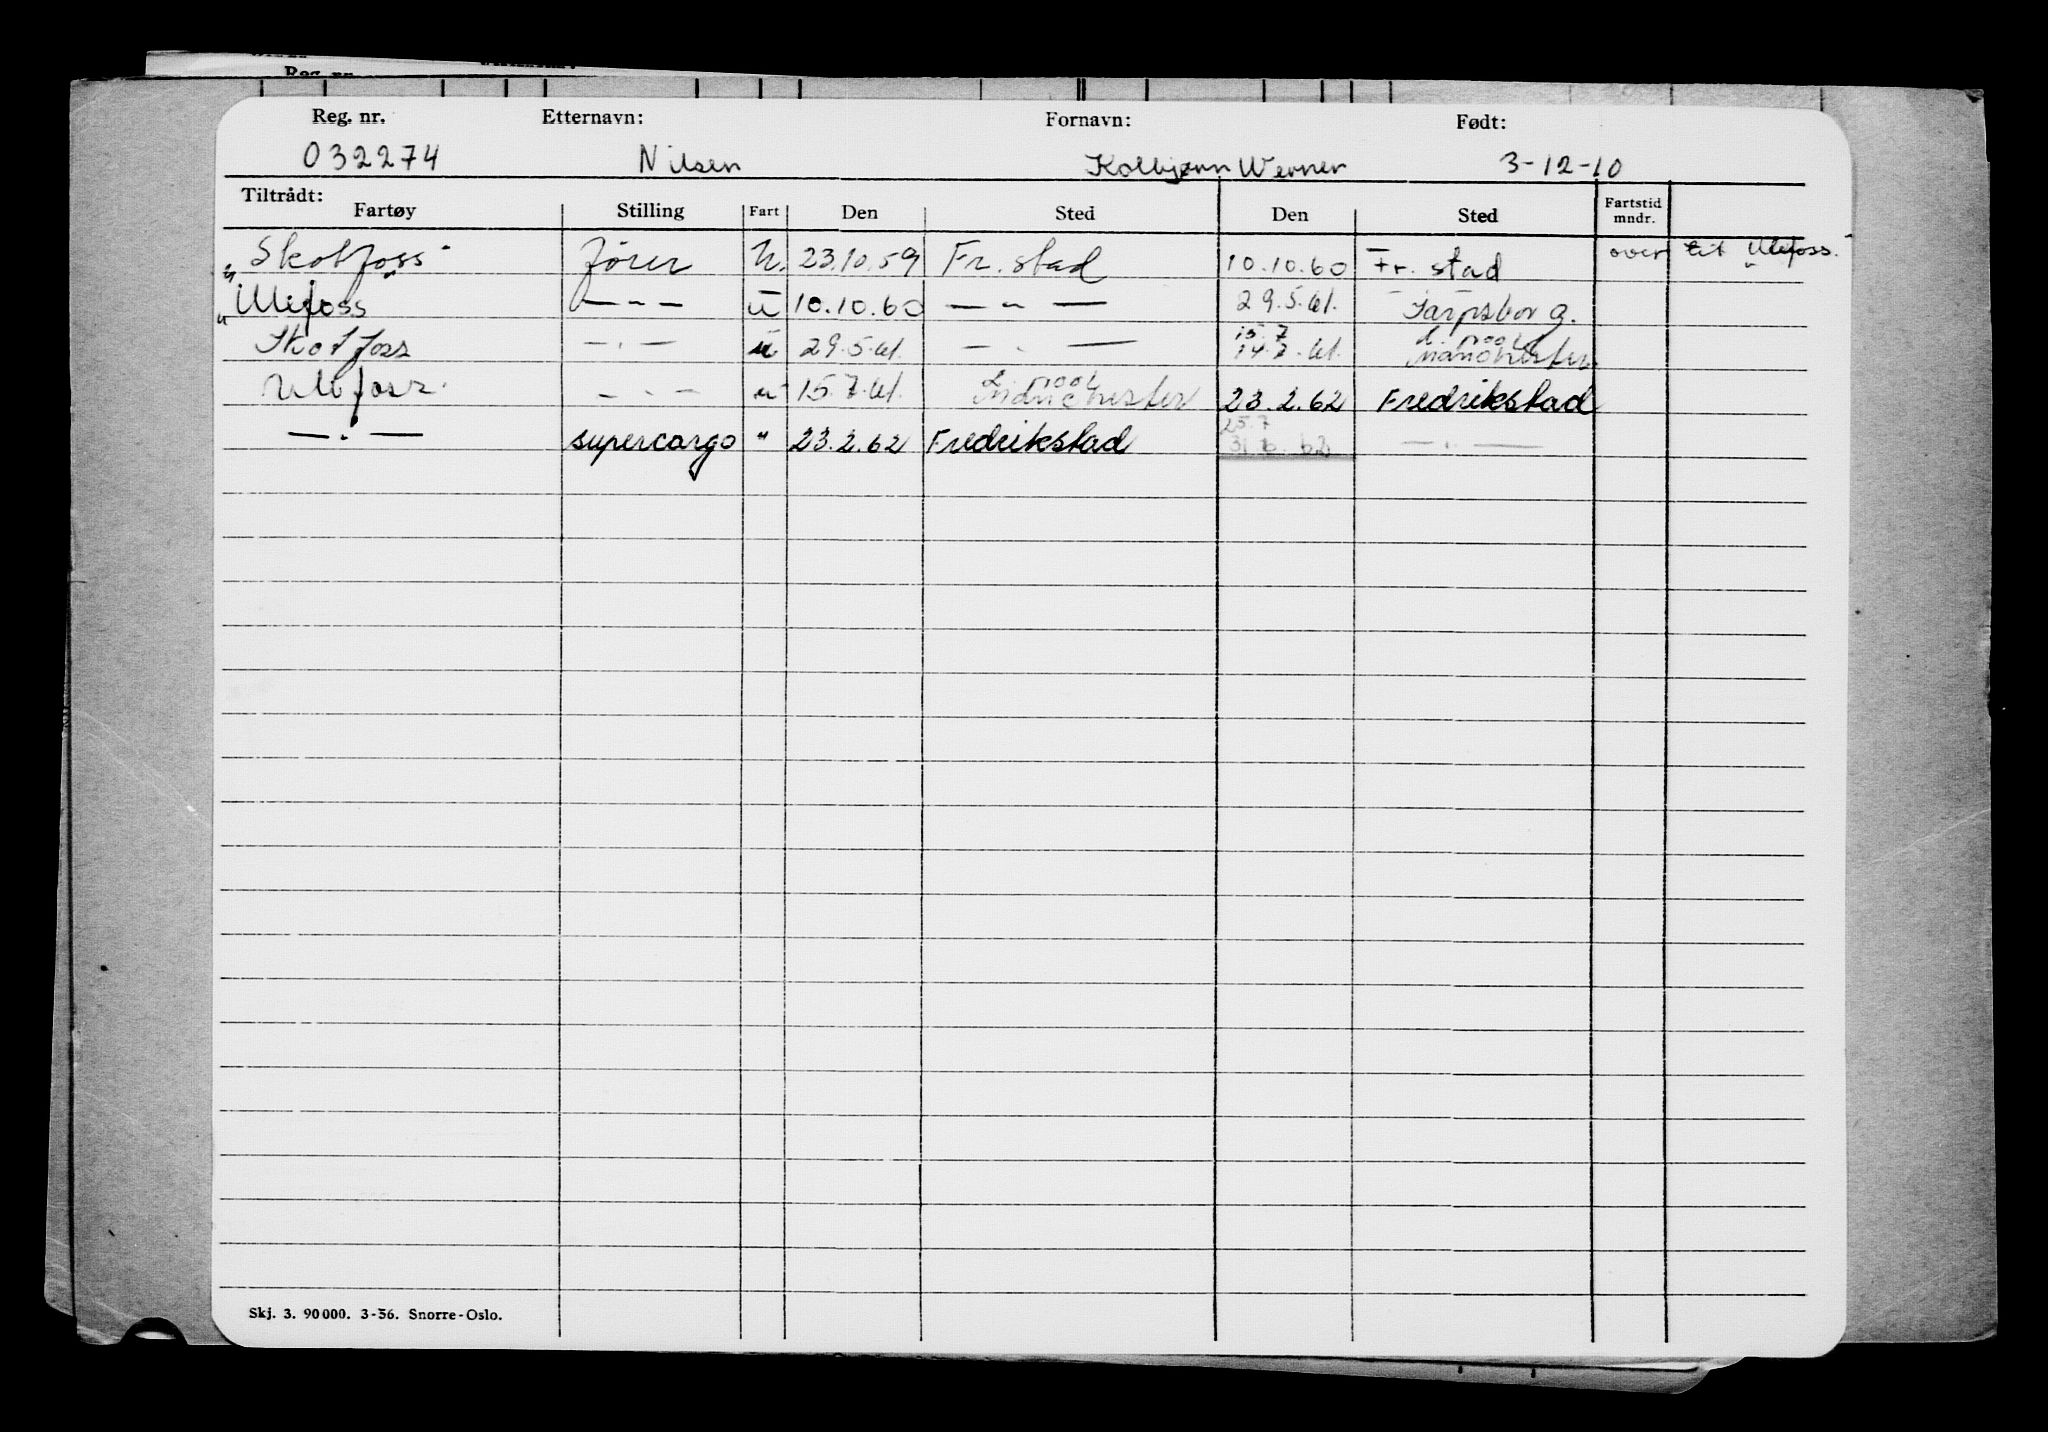 Reg. nr. Etternavn: Fornavn: Født:
032274 Nilsen Kolbjørn Werner 3-12-10
Tiltrådt:
Fartøy Stilling Fart Den Sted Den Sted Fartstid mndr.
"Skotfoss" fører u. 23.10.59 Fr.stad 10.10.60 Fr. stad over til "Ulefoss"
"Ulefoss — " — u 10.10.60 — " — 29.5.61. Sarpsborg.
15.7 L. pool
Skotfoss — " — u 29.5.61. — " — 14.7.61. Manchester
L. pool
Ulefoss — " — u 15.7.61. Manchester 23.2.62 Fredrikstad
25.7
— " — supercargo " 23.2.62 Fredrikstad — " —
Skj. 3. 90000. 3-56. Snorre-Oslo.